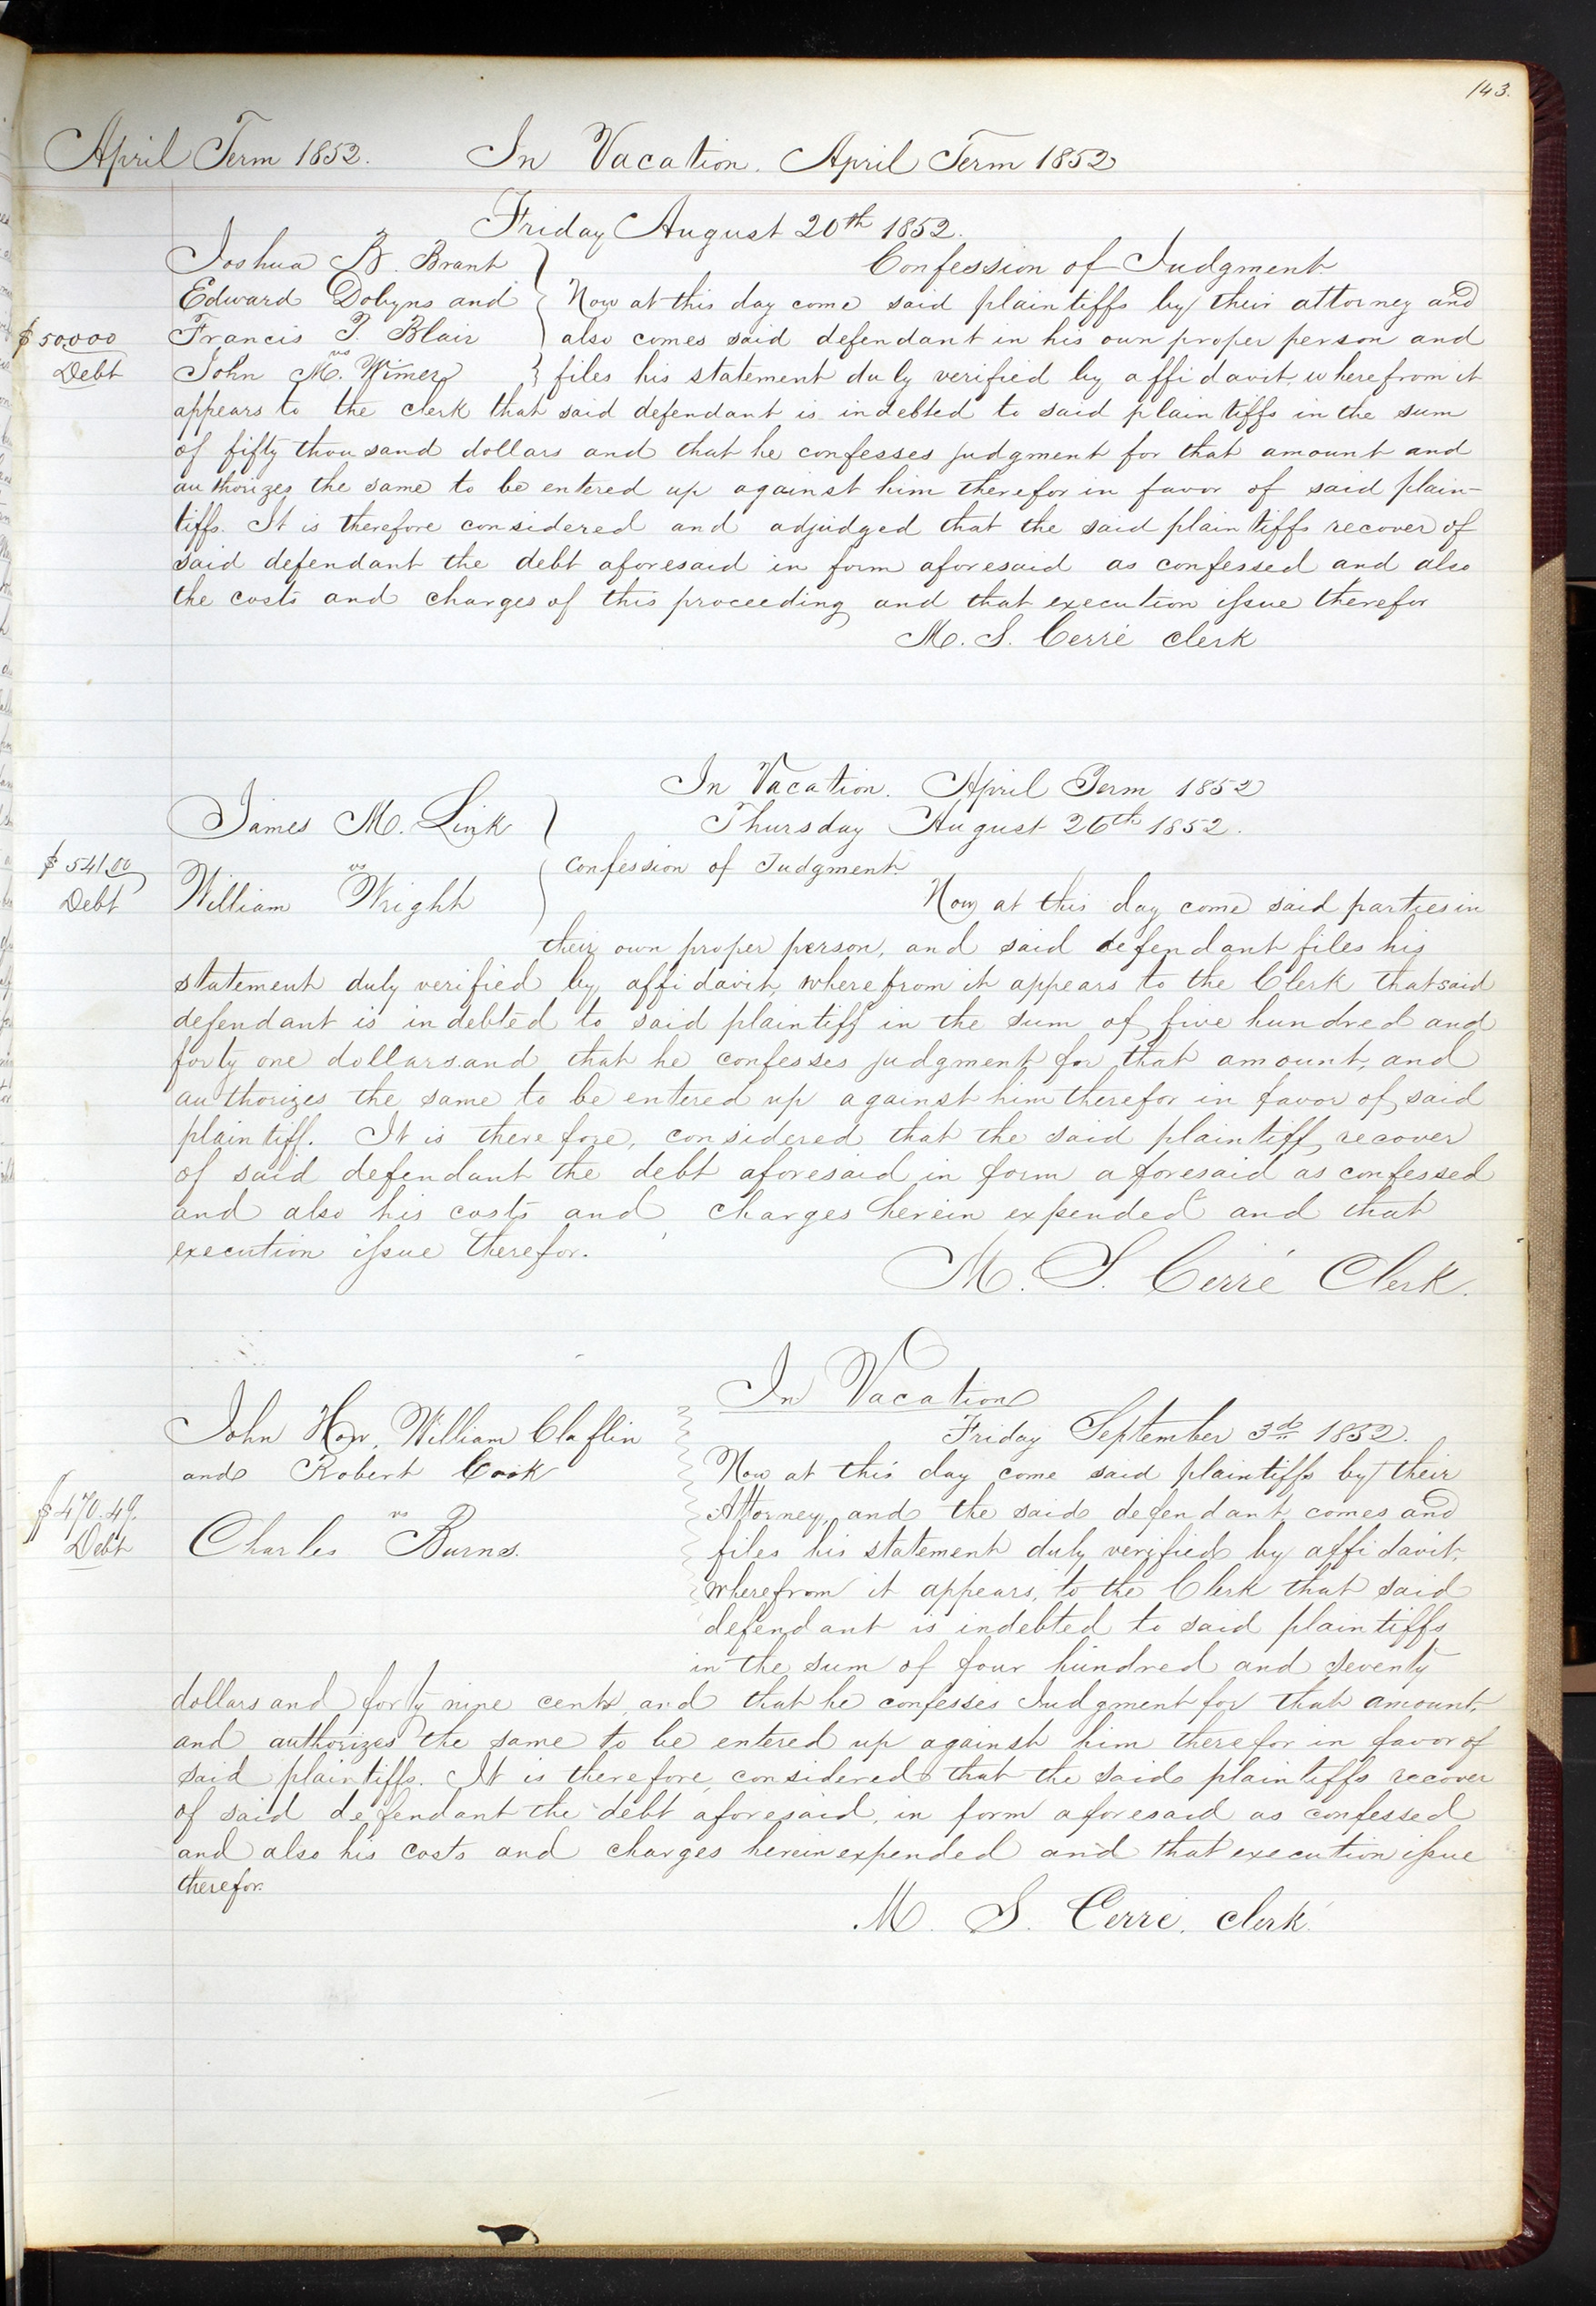 143.
April Term 1852. In Vacation. April Term 1852
Friday August 20th 1852.
Joshua B. Brant
Confession of Judgment
Edward Dobyns and
Now at this day come said plaintiffs by their attorney and
$50000
Francis P. Blair
also comes said defendant in his own proper person and
Debt
vs
John M. Wimer
files his statement duly verified by affidavit, wherefrom it
appears to the clerk that said defendant is indebted to said plaintiffs in the sum
of fifty thousand dollars and that he confesses judgment for that amount and
authorizes the same to be entered up against him therefor in favor of said plain-
tiffs. It is therefore considered and adjudged that the said plaintiffs recover of
said defendant the debt aforesaid in form aforesaid as confessed and also
the costs and charges of this proceeding and that execution issue therefor
M. S. Cerré clerk
In Vacation. April Term 1852
James M. Link
Thursday August 26th 1852.
$541.00
vs
Confession of Judgment
Debt
William Wright
Now at this day come said parties in
their own proper person, and said defendant files his
statement duly verified by affidavit, wherefrom it appears to the Clerk that said
defendant is indebted to said plaintiff in the sum of five hundred and
forty one dollars and that he confesses judgment for that amount, and
authorizes the same to be entered up against him therefor in favor of said
plaintiff. It is therefore, considered that the said plaintiff recover
of said defendant the debt aforesaid in form aforesaid as confessed
and also his costs and charges herein expended and that
execution issue therefor.
M. S. Cerré Clerk.
In Vacation
John How, William Claflin
Friday September 3d 1852.
and Robert Cook
Now at this day come said plaintiffs by their
$470.49.
vs
Attorney, and the said defendant comes and
Debt
Charles Burns.
files his statement duly verified by affidavit,
wherefrom it appears, to the Clerk that said
defendant is indebted to said plaintiffs
in the sum of four hundred and seventy
dollars and forty nine cents, and that he confesses Judgment for that amount,
and authorizes the same to be entered up against him therefor in favor of
said plaintiffs. It is therefore, considered that the said plaintiffs recover
of said defendant the debt aforesaid, in form aforesaid as confessed
and also his costs and charges herein expended and that execution issue
therefor.
M. S. Cerré. clerk.